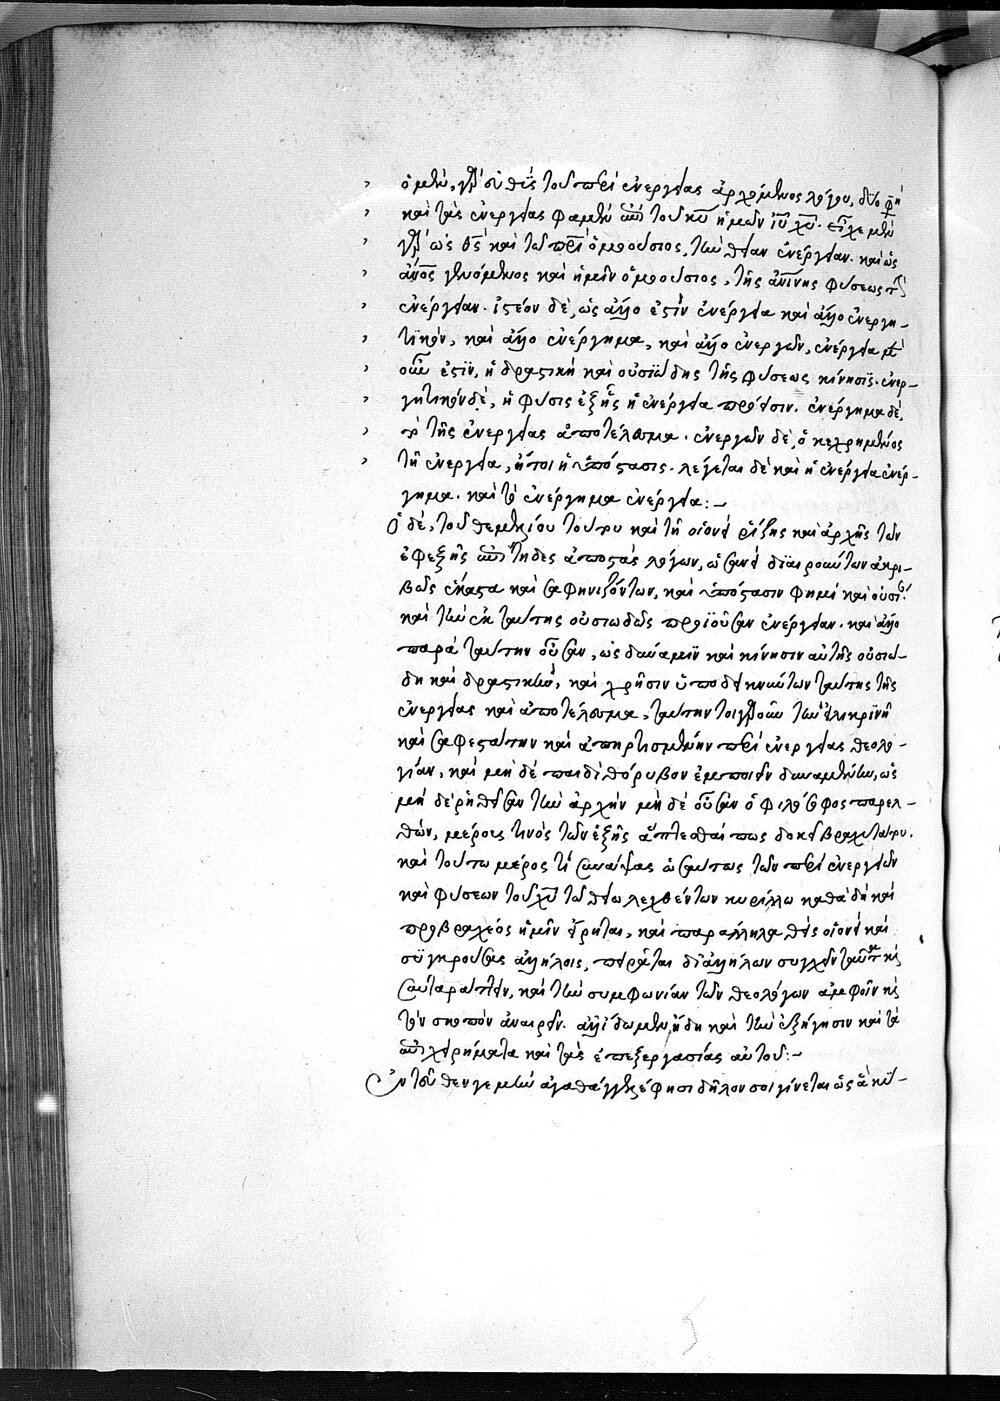 ὁ μὲν γὰρ εὐθὺς τοῦ περὶ ἐνεργείας ἀρχόμενος λόγου, δύο φησὶ
καὶ τὰς ἐνεργείας φαμὲν ἐπὶ τοῦ κυ ἡμῶν ιυ χυ. εἶχε μὲν
γὰρ ὡς θς καὶ τῶ πρι ὁμοούσιος, τὴν θείαν ἐνέργειαν. καὶ ὡς
ανος γενόμενος καὶ ἡμῖν ὁμοούσιος, τῆς ανινης φύσεως τὴν
ἐνέργειαν. ἰστέον δὲ, ὡς ἄλλο ἐστὶν ἐνέργεια καὶ ἄλλο ἐνεργη-
τικὸν, καὶ ἄλλο ἐνέργημα, καὶ ἄλλο ἐνεργῶν, ἐνέργεια μὲν
οὖν ἐστιν, ἡ δραστικὴ καὶ οὐσιώδης τῆς φύσεως κίνησις. ἐνερ-
γητικὸν δὲ, ἡ φύσις ἐξ ἧς ἡ ἐνέργεια πρόεισιν. ἐνέργημα δὲ,
τὸ τῆς ἐνεργείας ἀποτέλεσμα. ἐνεργῶν δὲ, ὁ κεχρημένος
τῆ ἐνεργεία, ἤτοι ἡ ὑπόστασις. λέγεται δὲ καὶ ἡ ἐνέργεια ἐνέρ-
γημα. καὶ τὸ ἐνέργημα ἐνέργεια:-
Ὁ δὲ, τοῦ θεμελίου τούτου καὶ τῆ οἱονεὶ ῥίζης καὶ ἀρχῆς τῶν
ἐφεξῆς ἐπίτηδες ἀποστὰς λόγων, ὡσανεὶ διαιρούντων ἀκρι-
βῶς ἕκαστα καὶ σαφηνιζόντων, καὶ ὑπόστασιν φημὶ καὶ οὐσίαν
καὶ τὴν ἐκ ταύτης οὐσιωδῶς προϊοῦσαν ἐνέργειαν. καὶ ἄλλο
παρὰ ταύτην οὖσαν, ὡς δύναμιν καὶ κίνησιν αὐτῆς οὐσιώ-
δη καὶ δραστικὴν, καὶ χρῆσιν ὑποδεικνύντων ταύτης τῆς
ἐνεργείας καὶ ἀποτέλεσμα, ταύτην τοιγαροῦν τὴν εἰλικρινῆ
καὶ σαφεστάτην καὶ ἀπηρτισμένην περὶ ἐνεργείας θεολο-
γίαν, καὶ μηδέ παιδὶ θόρυβον ἐμποιεῖν δυναμένην, ὡς
μὴ δὲ ῥηθεῖσαν τὴν ἀρχὴν μὴ δὲ οὖσαν ὁ φιλόσοφος παρελ-
θών, μέρους τινὸς τῶν ἑξῆς ἅπτεσθαί πως δοκεῖ βραχυτάτου.
καὶ τούτω μέρος τί συνάψας ὡσαύτως τῶν περὶ ἐνεργειῶν
καὶ φύσεων τοῦ χυ τῶ θείω λεχθέντων κυρίλλω καθὰ δὴ καὶ
πρὸ βραχέος ἡμῖν εἴρηται, καὶ παράλληλα θεὶς οἱονεὶ καὶ
συγκρούσας ἀλλήλοις, πειρᾶται δι ἀλλήλων συγχεῖν ταῦτα καὶ
συνταράττειν, καὶ τὴν συμφωνίαν τῶν θεολόγων ἀμφοῖν καὶ
τὸν σκοπὸν ἀναιρεῖν. ἀλλ ἴδωμεν ἤδη καὶ τὴν ἐξήγησιν καὶ τὰ
ἐπιχειρήματα καὶ τὰς ἐπεξεργασίας αὐτοῦ:-
Ἐντεῦθεν γε μὴν ἀγαθάγγελε φησι δῆλον σοι γίνεται ὡς